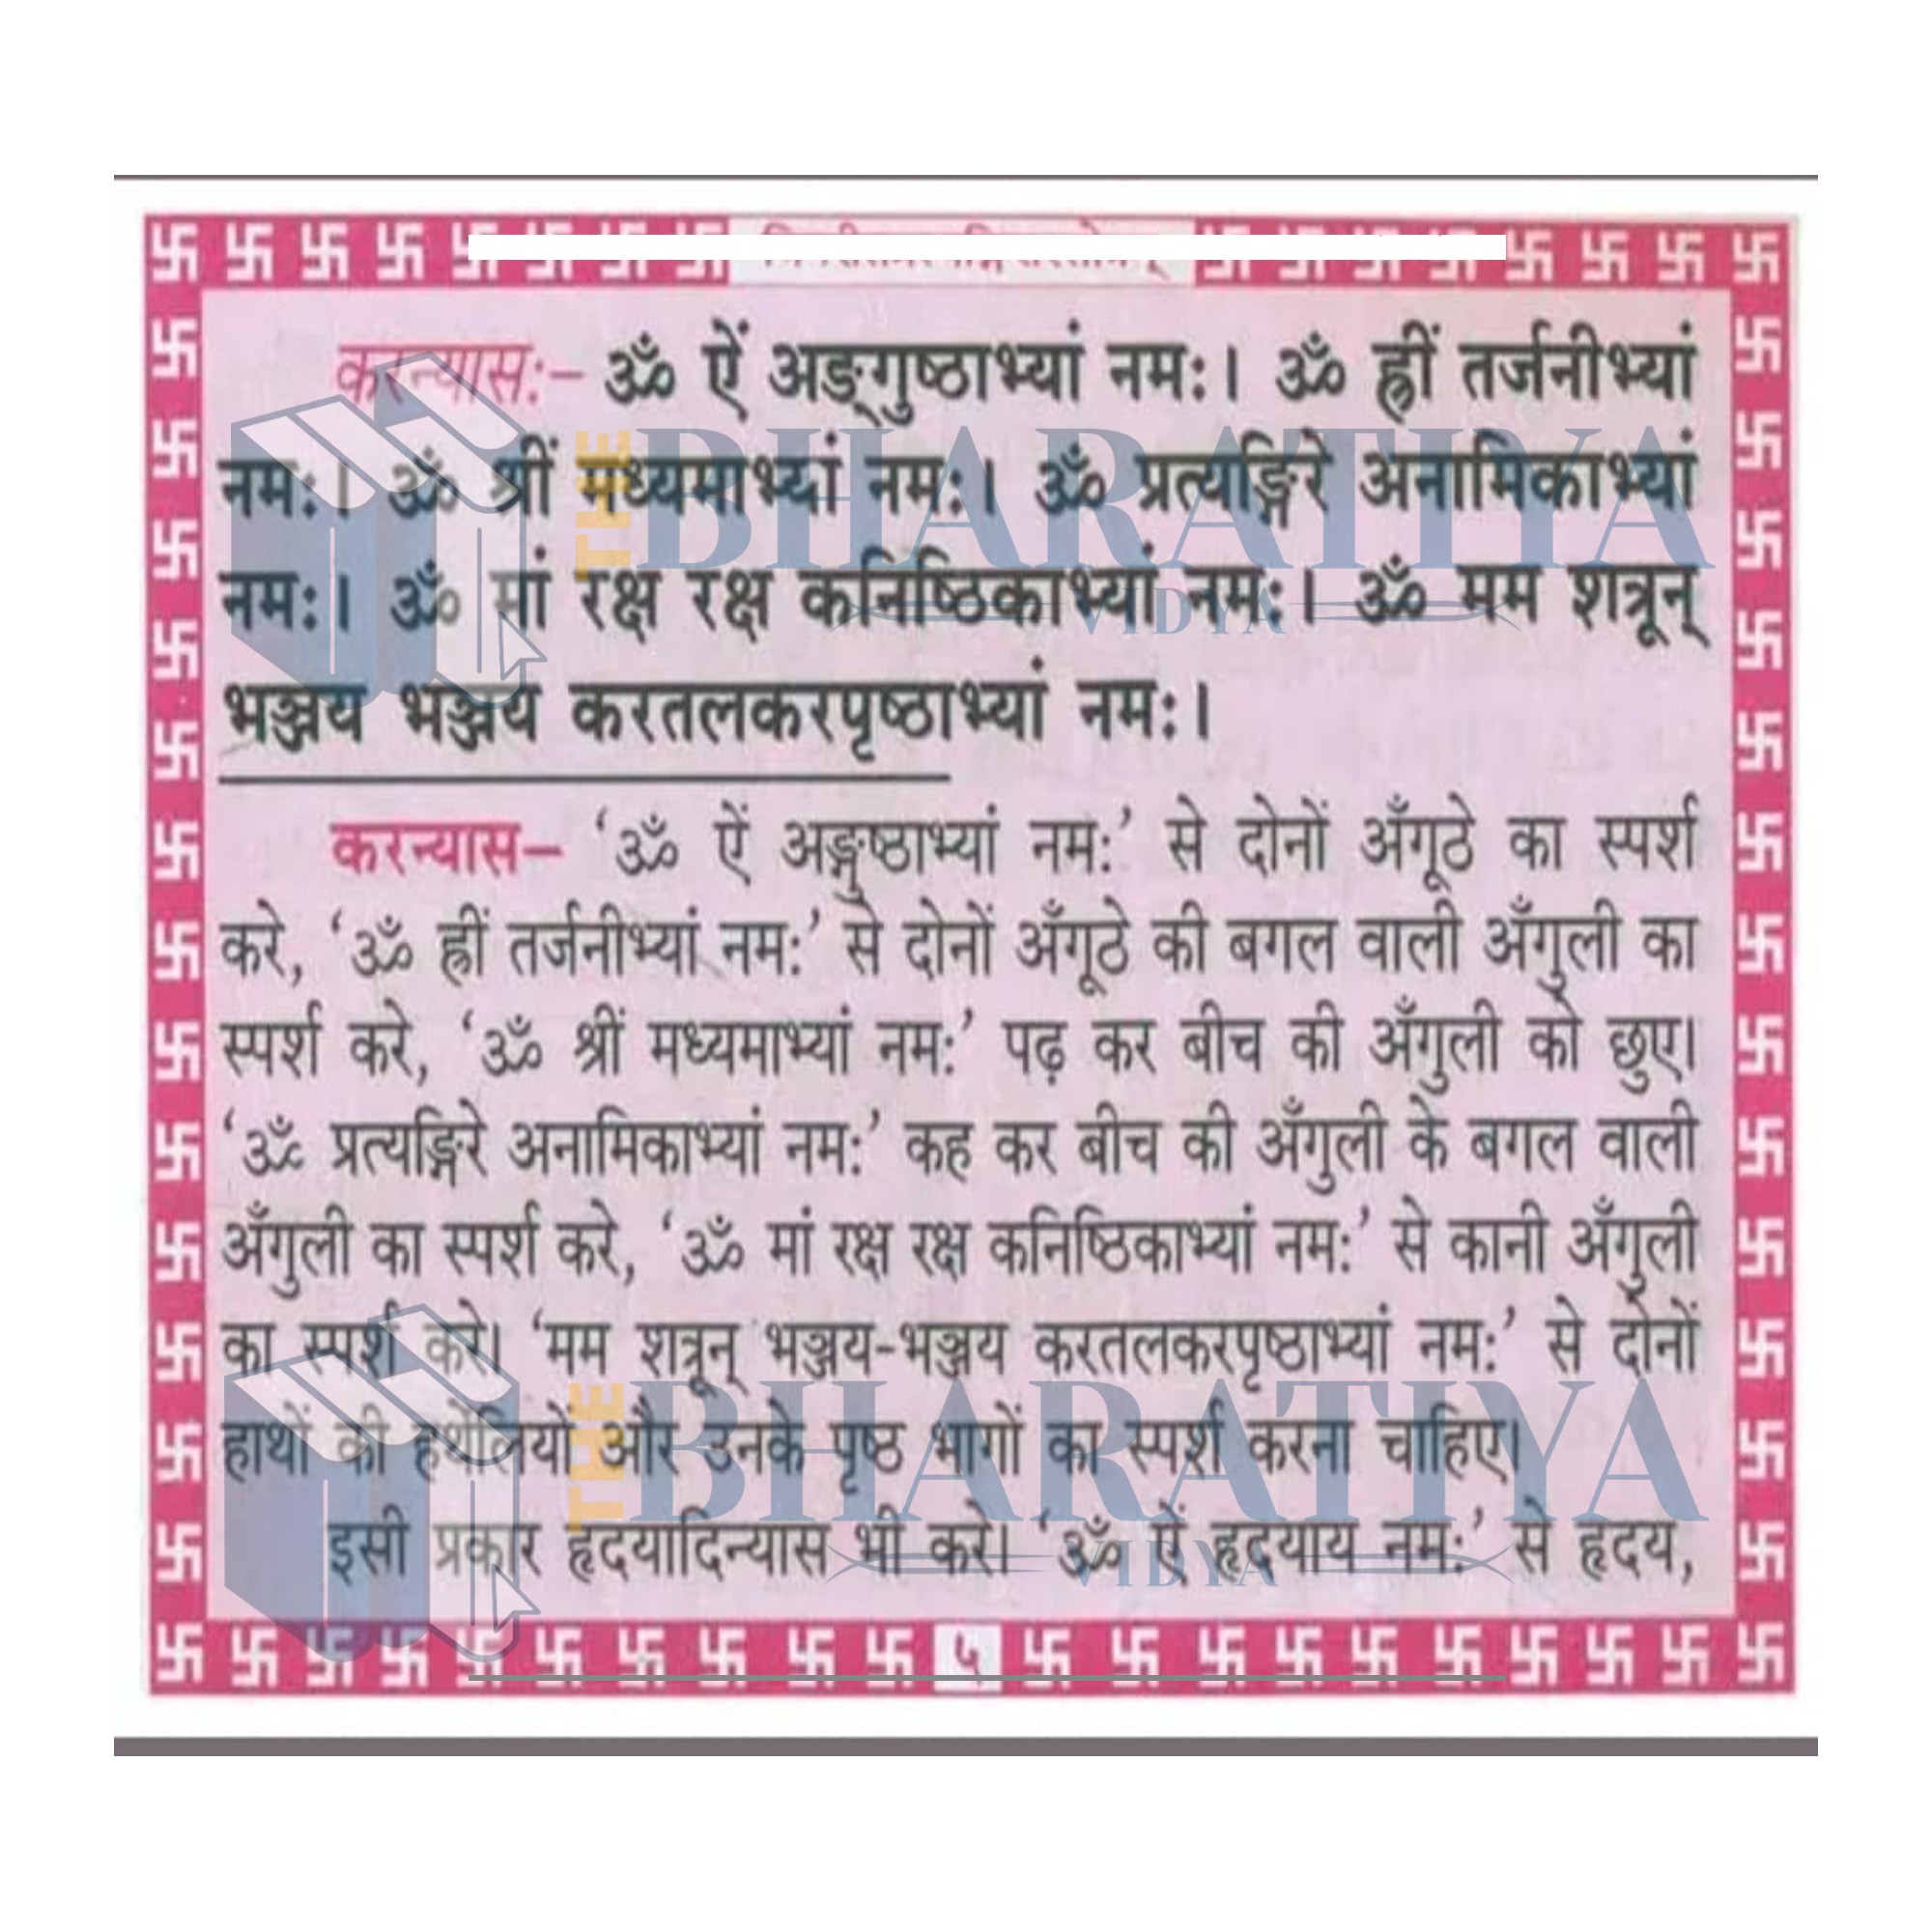 करन्यासः– ॐ ऐं अङ्गुष्ठाभ्यां नमः। ॐ ह्रीं तर्जनीभ्यां
नमः। ॐ श्रीं मध्यमाभ्यां नमः। ॐ प्रत्यङ्गिरे अनामिकाभ्यां
नमः। ॐ मां रक्ष रक्ष कनिष्ठिकाभ्यां नमः। ॐ मम शत्रून्
भञ्जय भञ्जय करतलकरपृष्ठाभ्यां नमः।
करन्यास– ‘ॐ ऐं अङ्गुष्ठाभ्यां नमः’ से दोनों अँगूठे का स्पर्श
करे, ‘ॐ ह्रीं तर्जनीभ्यां नमः’ से दोनों अँगूठे की बगल वाली अँगुली का
स्पर्श करे, ‘ॐ श्रीं मध्यमाभ्यां नमः’ पढ़ कर बीच की अँगुली को छुए।
‘ॐ प्रत्यङ्गिरे अनामिकाभ्यां नमः’ कह कर बीच की अँगुली के बगल वाली
अँगुली का स्पर्श करे, ‘ॐ मां रक्ष रक्ष कनिष्ठिकाभ्यां नमः’ से कानी अँगुली
का स्पर्श करे। ‘मम शत्रून् भञ्जय-भञ्जय करतलकरपृष्ठाभ्यां नमः’ से दोनों
हाथों की हथेलियों और उनके पृष्ठ भागों का स्पर्श करना चाहिए।
इसी प्रकार हृदयादिन्यास भी करे। ‘ॐ ऐं हृदयाय नमः’ से हृदय,
५
THE BHARATIYA
VIDYA
THE BHARATIYA
VIDYA